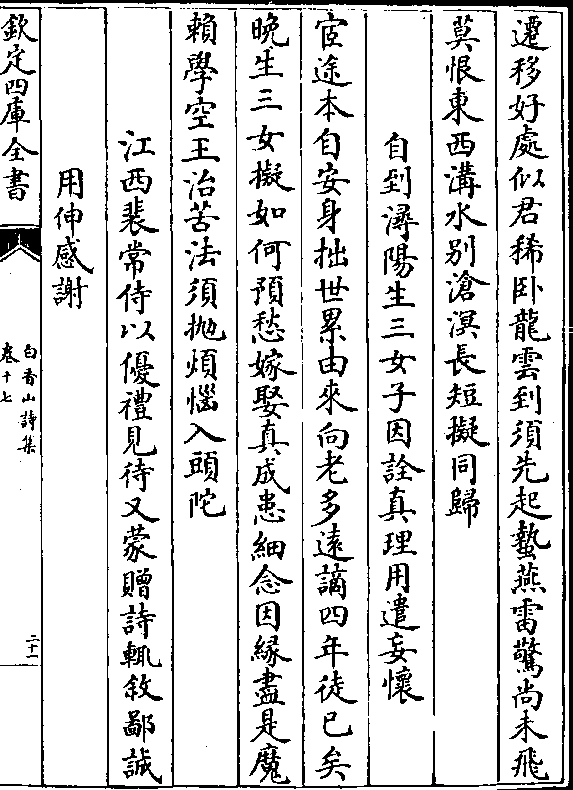 遷移好處似君稀卧龍雲到須先起蟄燕雷驚尚未飛
莫恨東西溝水别滄溟長短擬同歸
自到潯陽生三女子因詮真理用遣妄懷
宦途本自安身拙世累由來向老多逺謫四年徒已矣
晚生三女擬如何預愁嫁娶真成患細念因縁盡是魔
賴學空王治苦法須抛煩惱入頭陀
江西裴常侍以優禮見待又蒙贈詩輒敘鄙誠
用伸感謝
欽定四庫全書
白香山詩集
卷十七
二十一